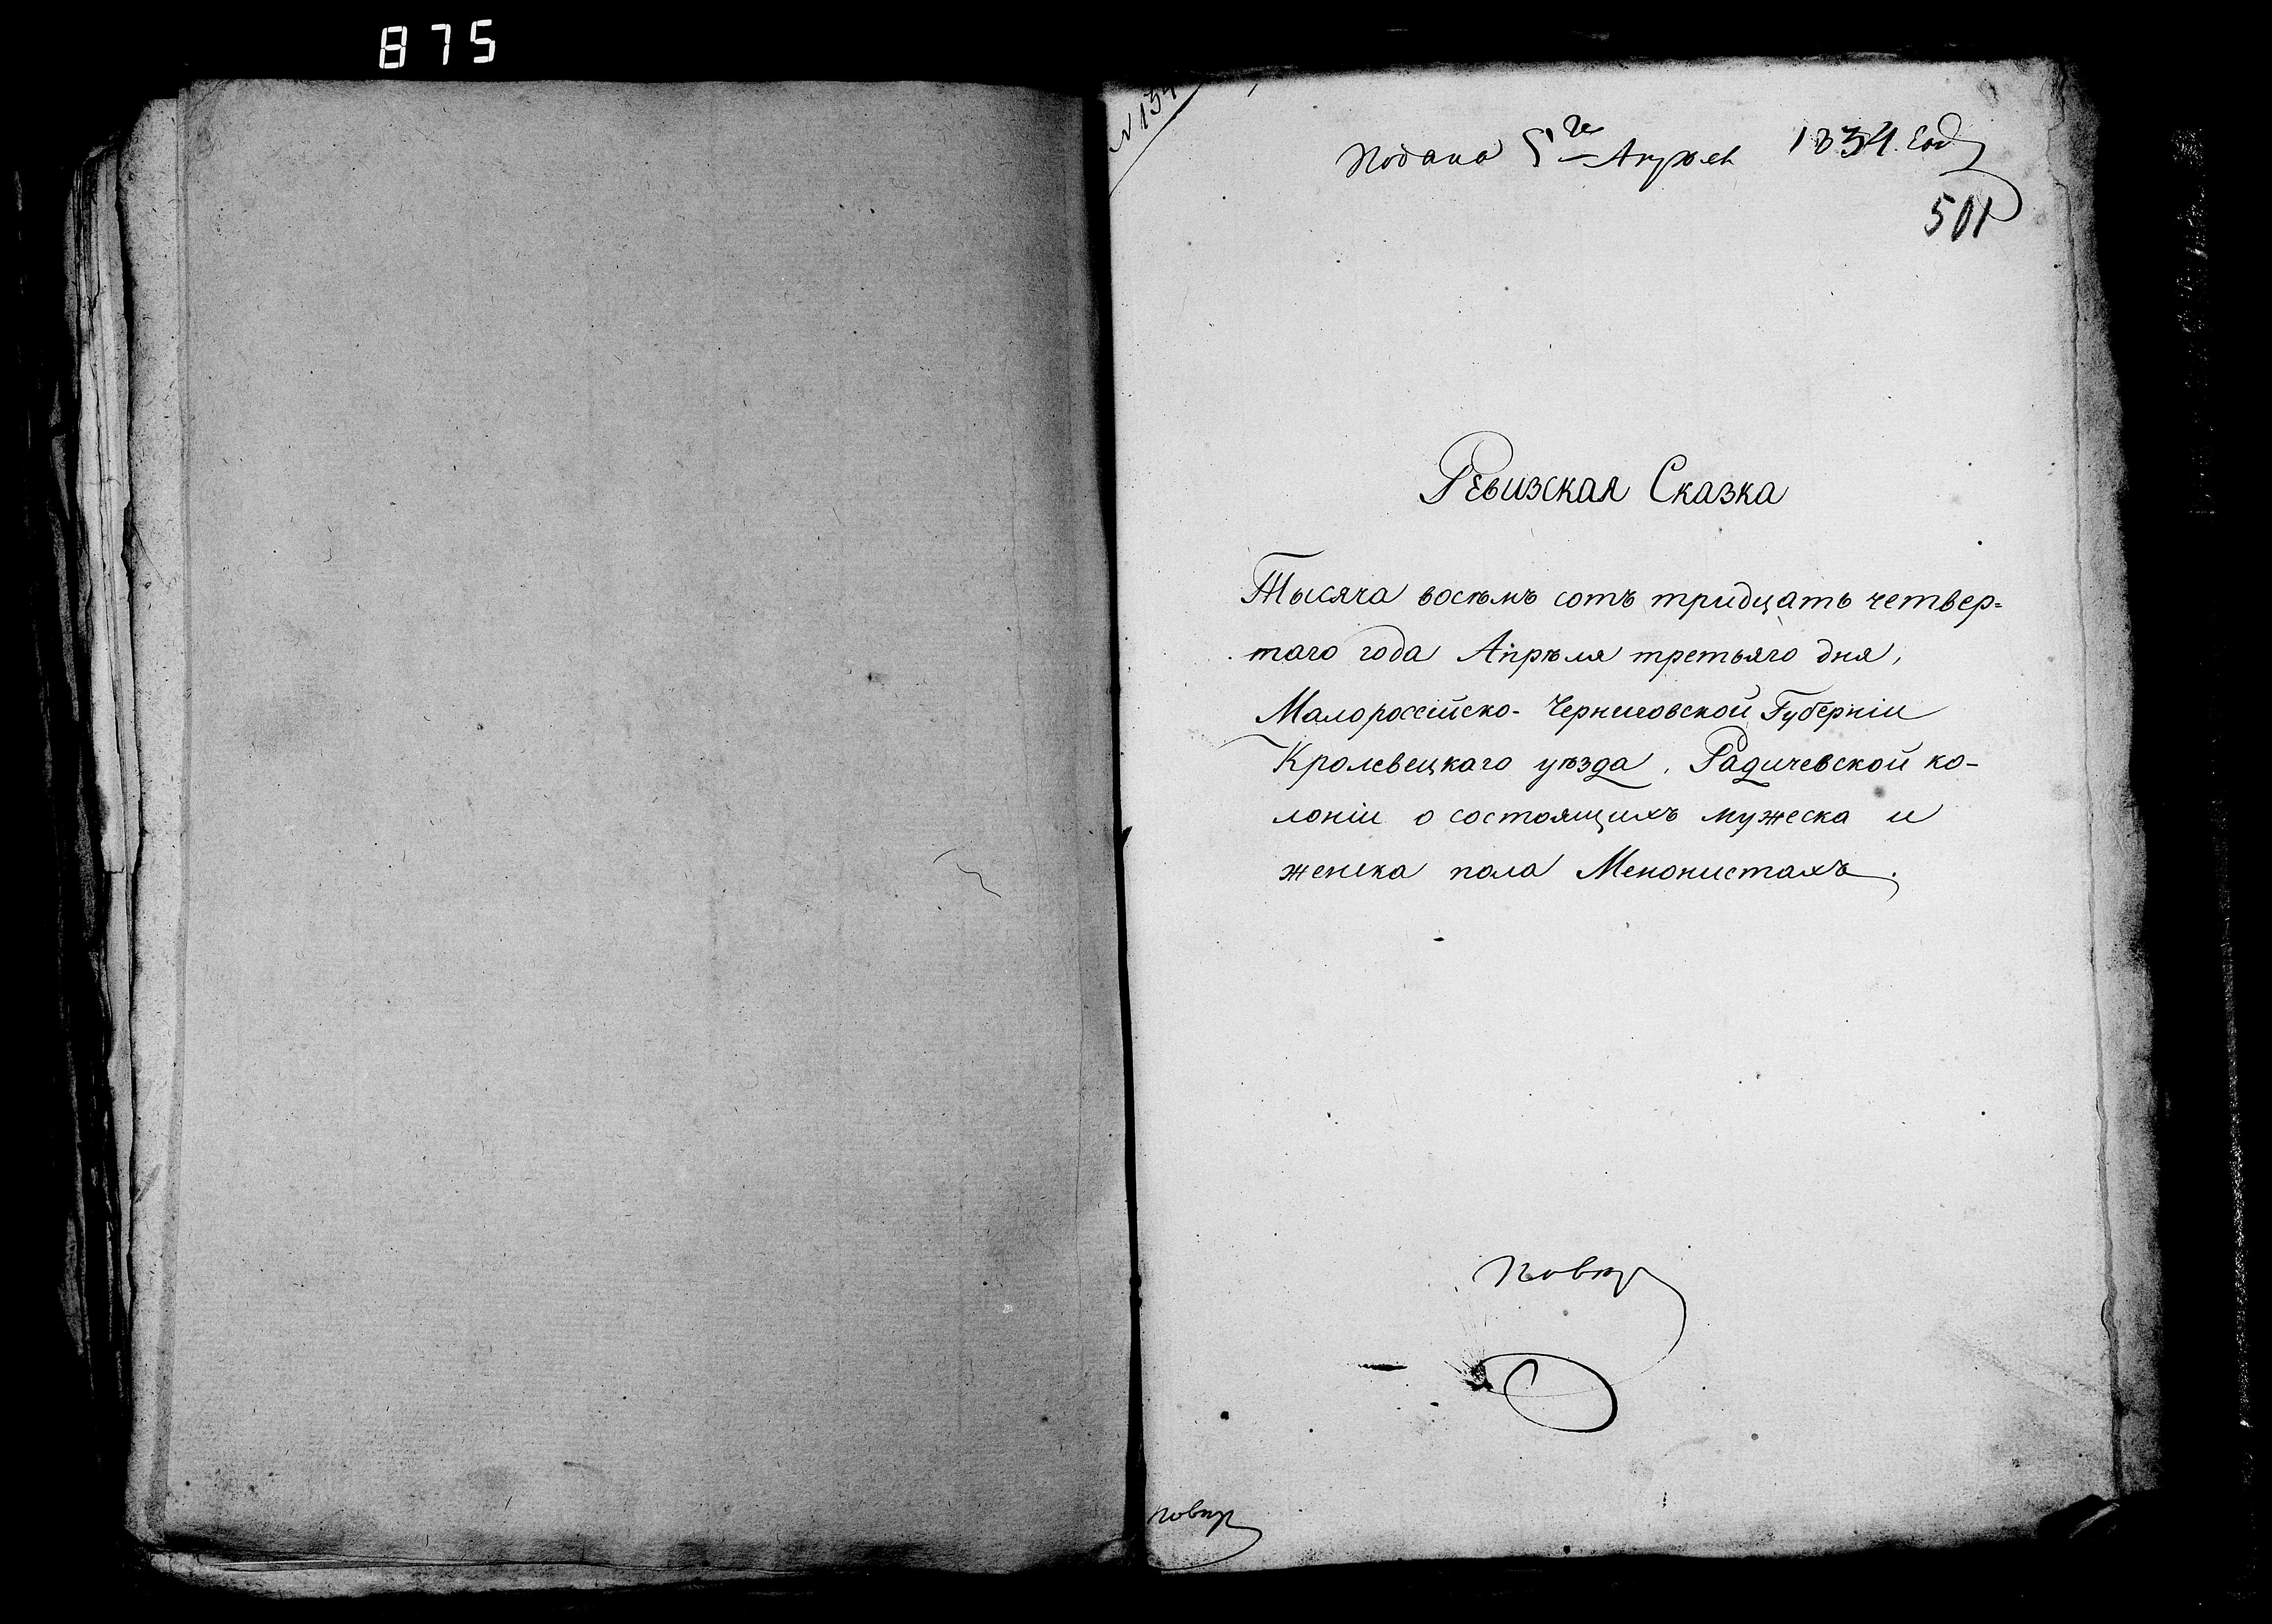 875
N 134
Подана 5го Апреля 1834. году
501
Ревизская Сказка
Тысяча восѣмъ сотъ тридцать четвер=
таго года Апрѣля третьяго дня,
Малороссійско-Черниговской Губерніи
Кролевецкаго уѣзда, Радичевской ко-
лоніи о состоящихъ мужеска и
женска пола Менонистахъ.